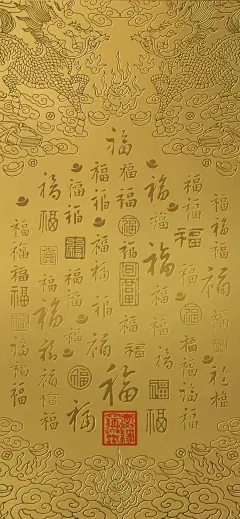 福
福 福 福
福 福 福 福 福
福 福 福 福 福 福
福 福 福 福 福 福 福
福 福 福 福 福 福 福
福 福 福 福 福 福 福
福 福 福 福 福 福 福
福 福 福 福 福 福 福
福 福 福 福 福 福 福
福 福 福 福 福 福 福
福 福 福 福 福 福
福 福 福